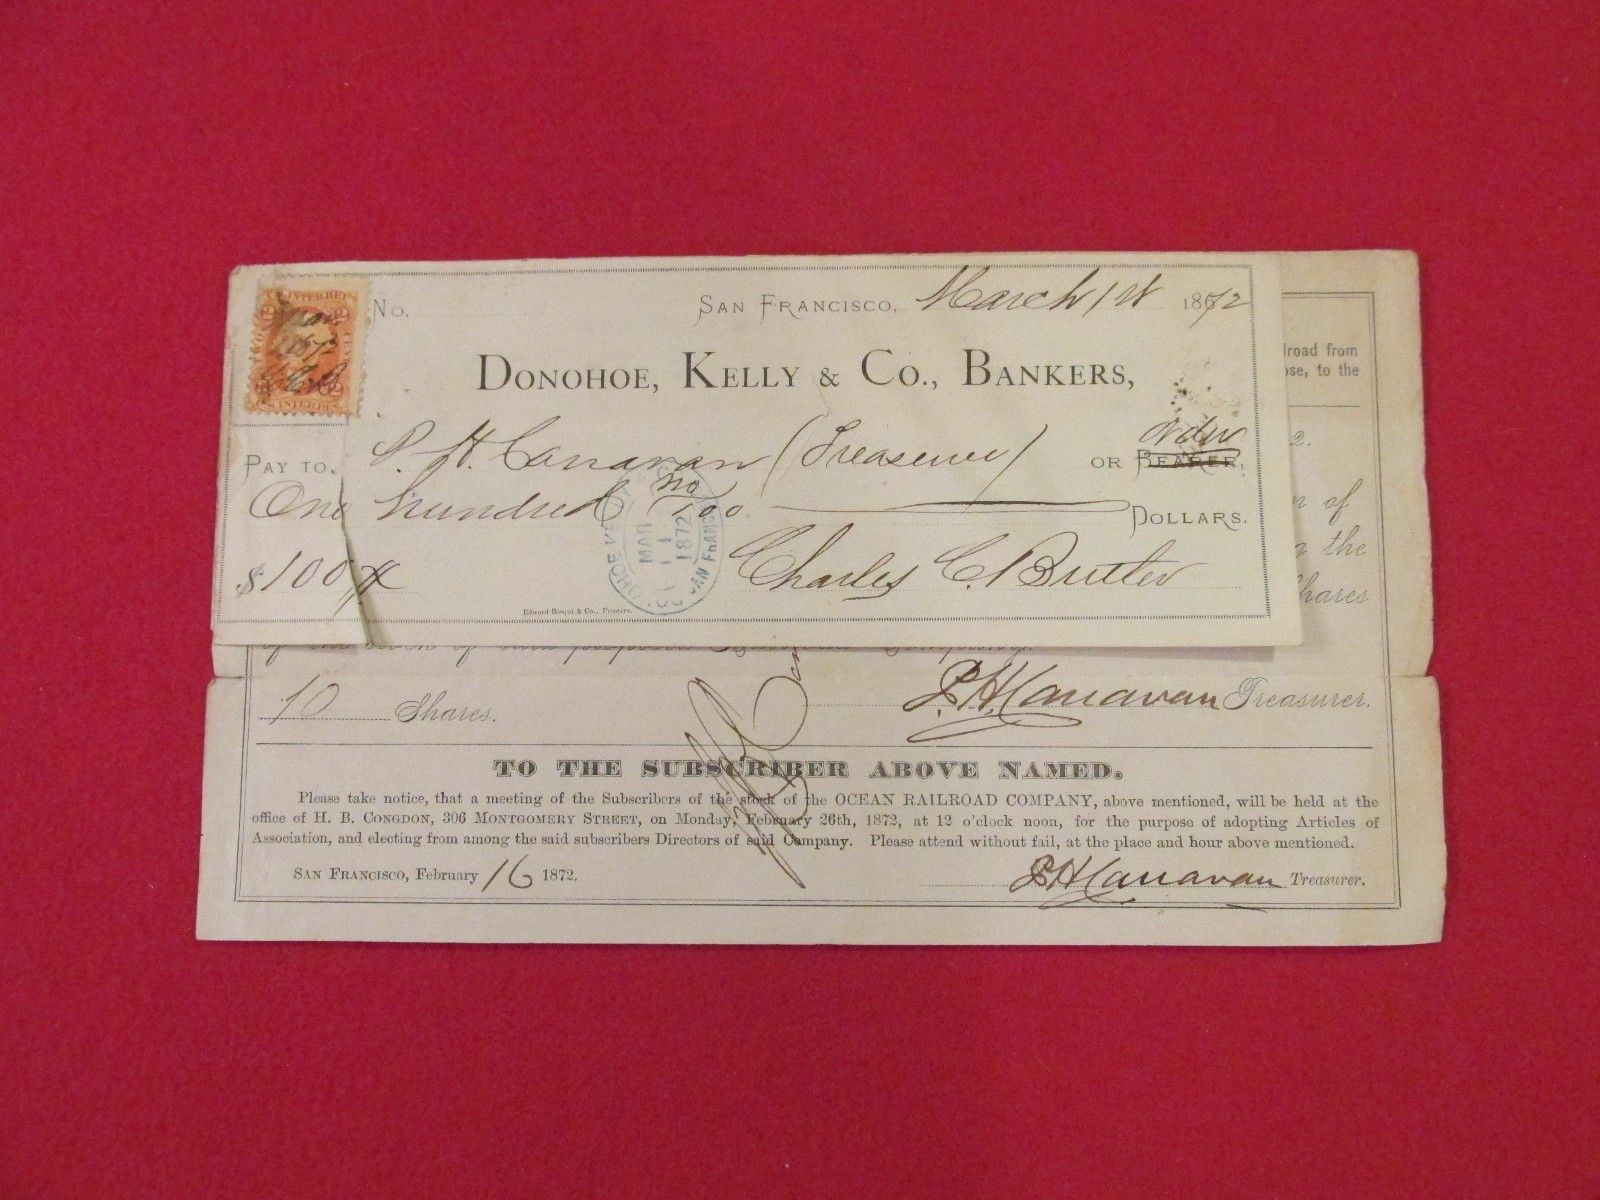 U.S. INTER. REV.
No.
SAN FRANCISCO, March 1st 1872
DONOHOE, KELLY & CO., BANKERS,
PAY TO P. H. Canavan (Treasurer) OR BEARER, order
One hundred no/100 DOLLARS.
$100 Charles C. Butler
MAR 1 1872
SAN FRANCISCO
Edward Bosqui & Co., Printers.
lroad from
ose, to the
2.
n of
the
hares
10 Shares. P. H. Canavan Treasurer.
TO THE SUBSCRIBER ABOVE NAMED.
Please take notice, that a meeting of the Subscribers of the stock of the OCEAN RAILROAD COMPANY, above mentioned, will be held at the
office of H. B. CONGDON, 306 MONTGOMERY STREET, on Monday, February 26th, 1872, at 12 o'clock noon, for the purpose of adopting Articles of
Association, and electing from among the said subscribers Directors of said Company. Please attend without fail, at the place and hour above mentioned.
SAN FRANCISCO, February 16 1872. P H Canavan Treasurer.